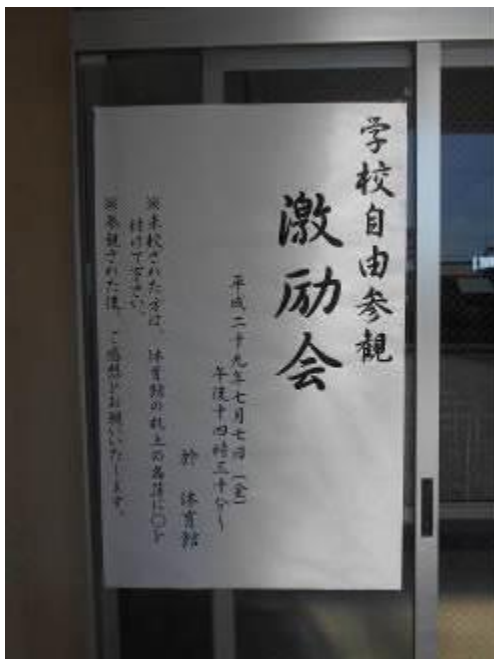 学校自由参観
激励会
平成二十九年七月七日(金)
午後十四時三十分〜
於 体育館
※来校された方は、体育館の机上の名簿に○を
付けて下さい。
※参観された後、ご感想をお願いいたします。